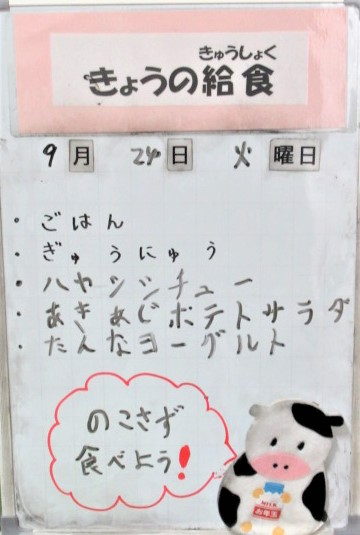 きゅうしょく
きょうの給食
9月 24日 火曜日
・ごはん
・ぎゅうにゅう
・ハヤシシチュー
・あきあじポテトサラダ
・たんなヨーグルト
のこさず
食べよう!
MILK